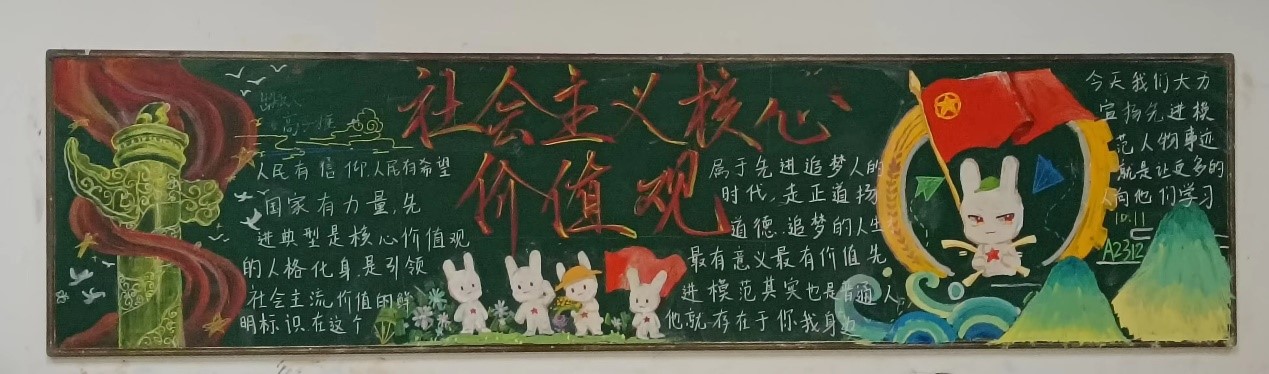 社会主义核心
价值观
人民有信仰,人民有希望
国家有力量,先
进典型是核心价值观
的人格化身,是引领
社会主流价值的鲜
明标识,在这个
属于先进追梦人的
时代,走正道扬
道德,追梦的人生
最有意义最有价值,先
进模范其实也是普通人,
他就存在于你我身边
今天我们大力
宣扬先进模
范人物事迹
就是让更多的
人向他们学习
10.11
A2312